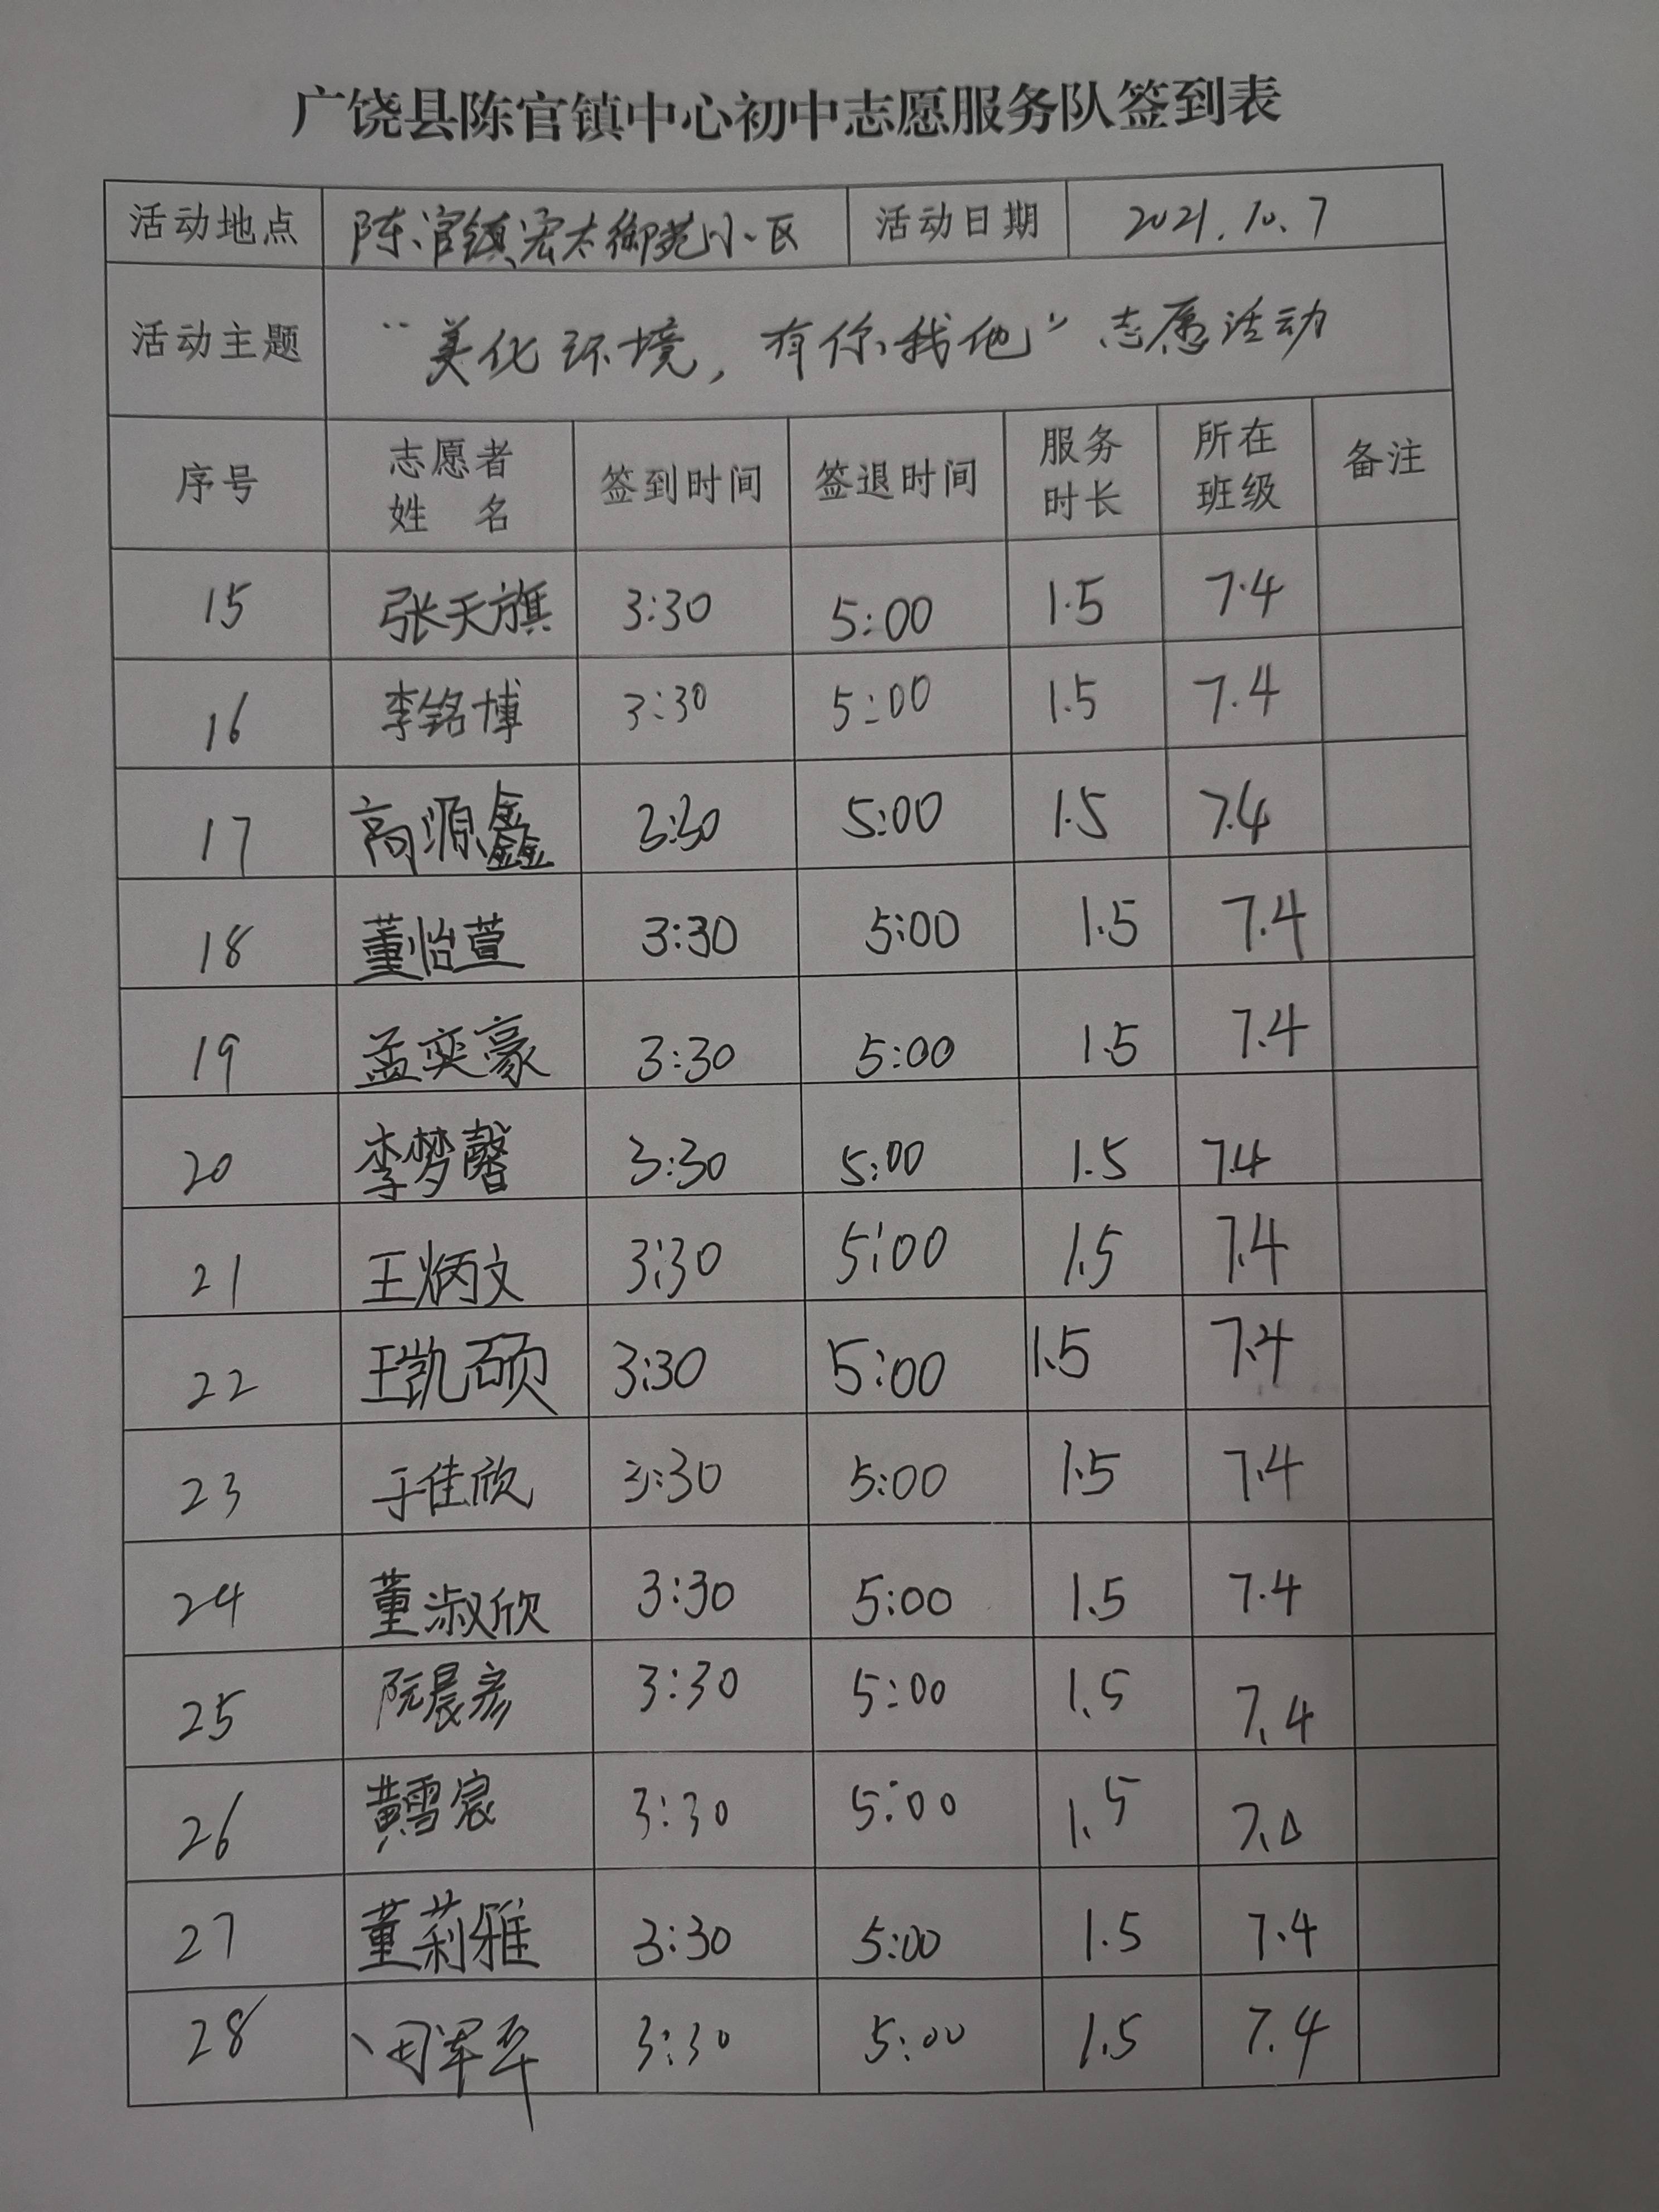 广饶县陈官镇中心初中志愿服务队签到表
活动地点 陈官镇宏太御苑小区 活动日期 2021.10.7
活动主题 “美化环境，有你我他”志愿活动
序号 志愿者姓名 签到时间 签退时间 服务时长 所在班级 备注
15 张天旗 3:30 5:00 1.5 7.4
16 李铭博 3:30 5:00 1.5 7.4
17 高源鑫 3:30 5:00 1.5 7.4
18 董怡萱 3:30 5:00 1.5 7.4
19 孟奕豪 3:30 5:00 1.5 7.4
20 李梦馨 3:30 5:00 1.5 7.4
21 王炳文 3:30 5:00 1.5 7.4
22 王凯硕 3:30 5:00 1.5 7.4
23 于佳欣 3:30 5:00 1.5 7.4
24 董淑欣 3:30 5:00 1.5 7.4
25 阮晨彦 3:30 5:00 1.5 7.4
26 黄雪宸 3:30 5:00 1.5 7.4
27 董莉雅 3:30 5:00 1.5 7.4
28 3:30 5:00 1.5 7.4